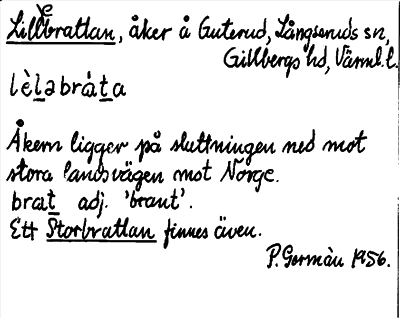 Lillebrattan, åker å Guterud, Långseruds sn,
Gillbergs hd, Värml. l.
lèlabráta
Åkern ligger på sluttningen ned mot
stora landsvägen mot Norge.
brat adj. 'brant'.
Ett Storbrattan finnes även.
P. Germàn 1956.